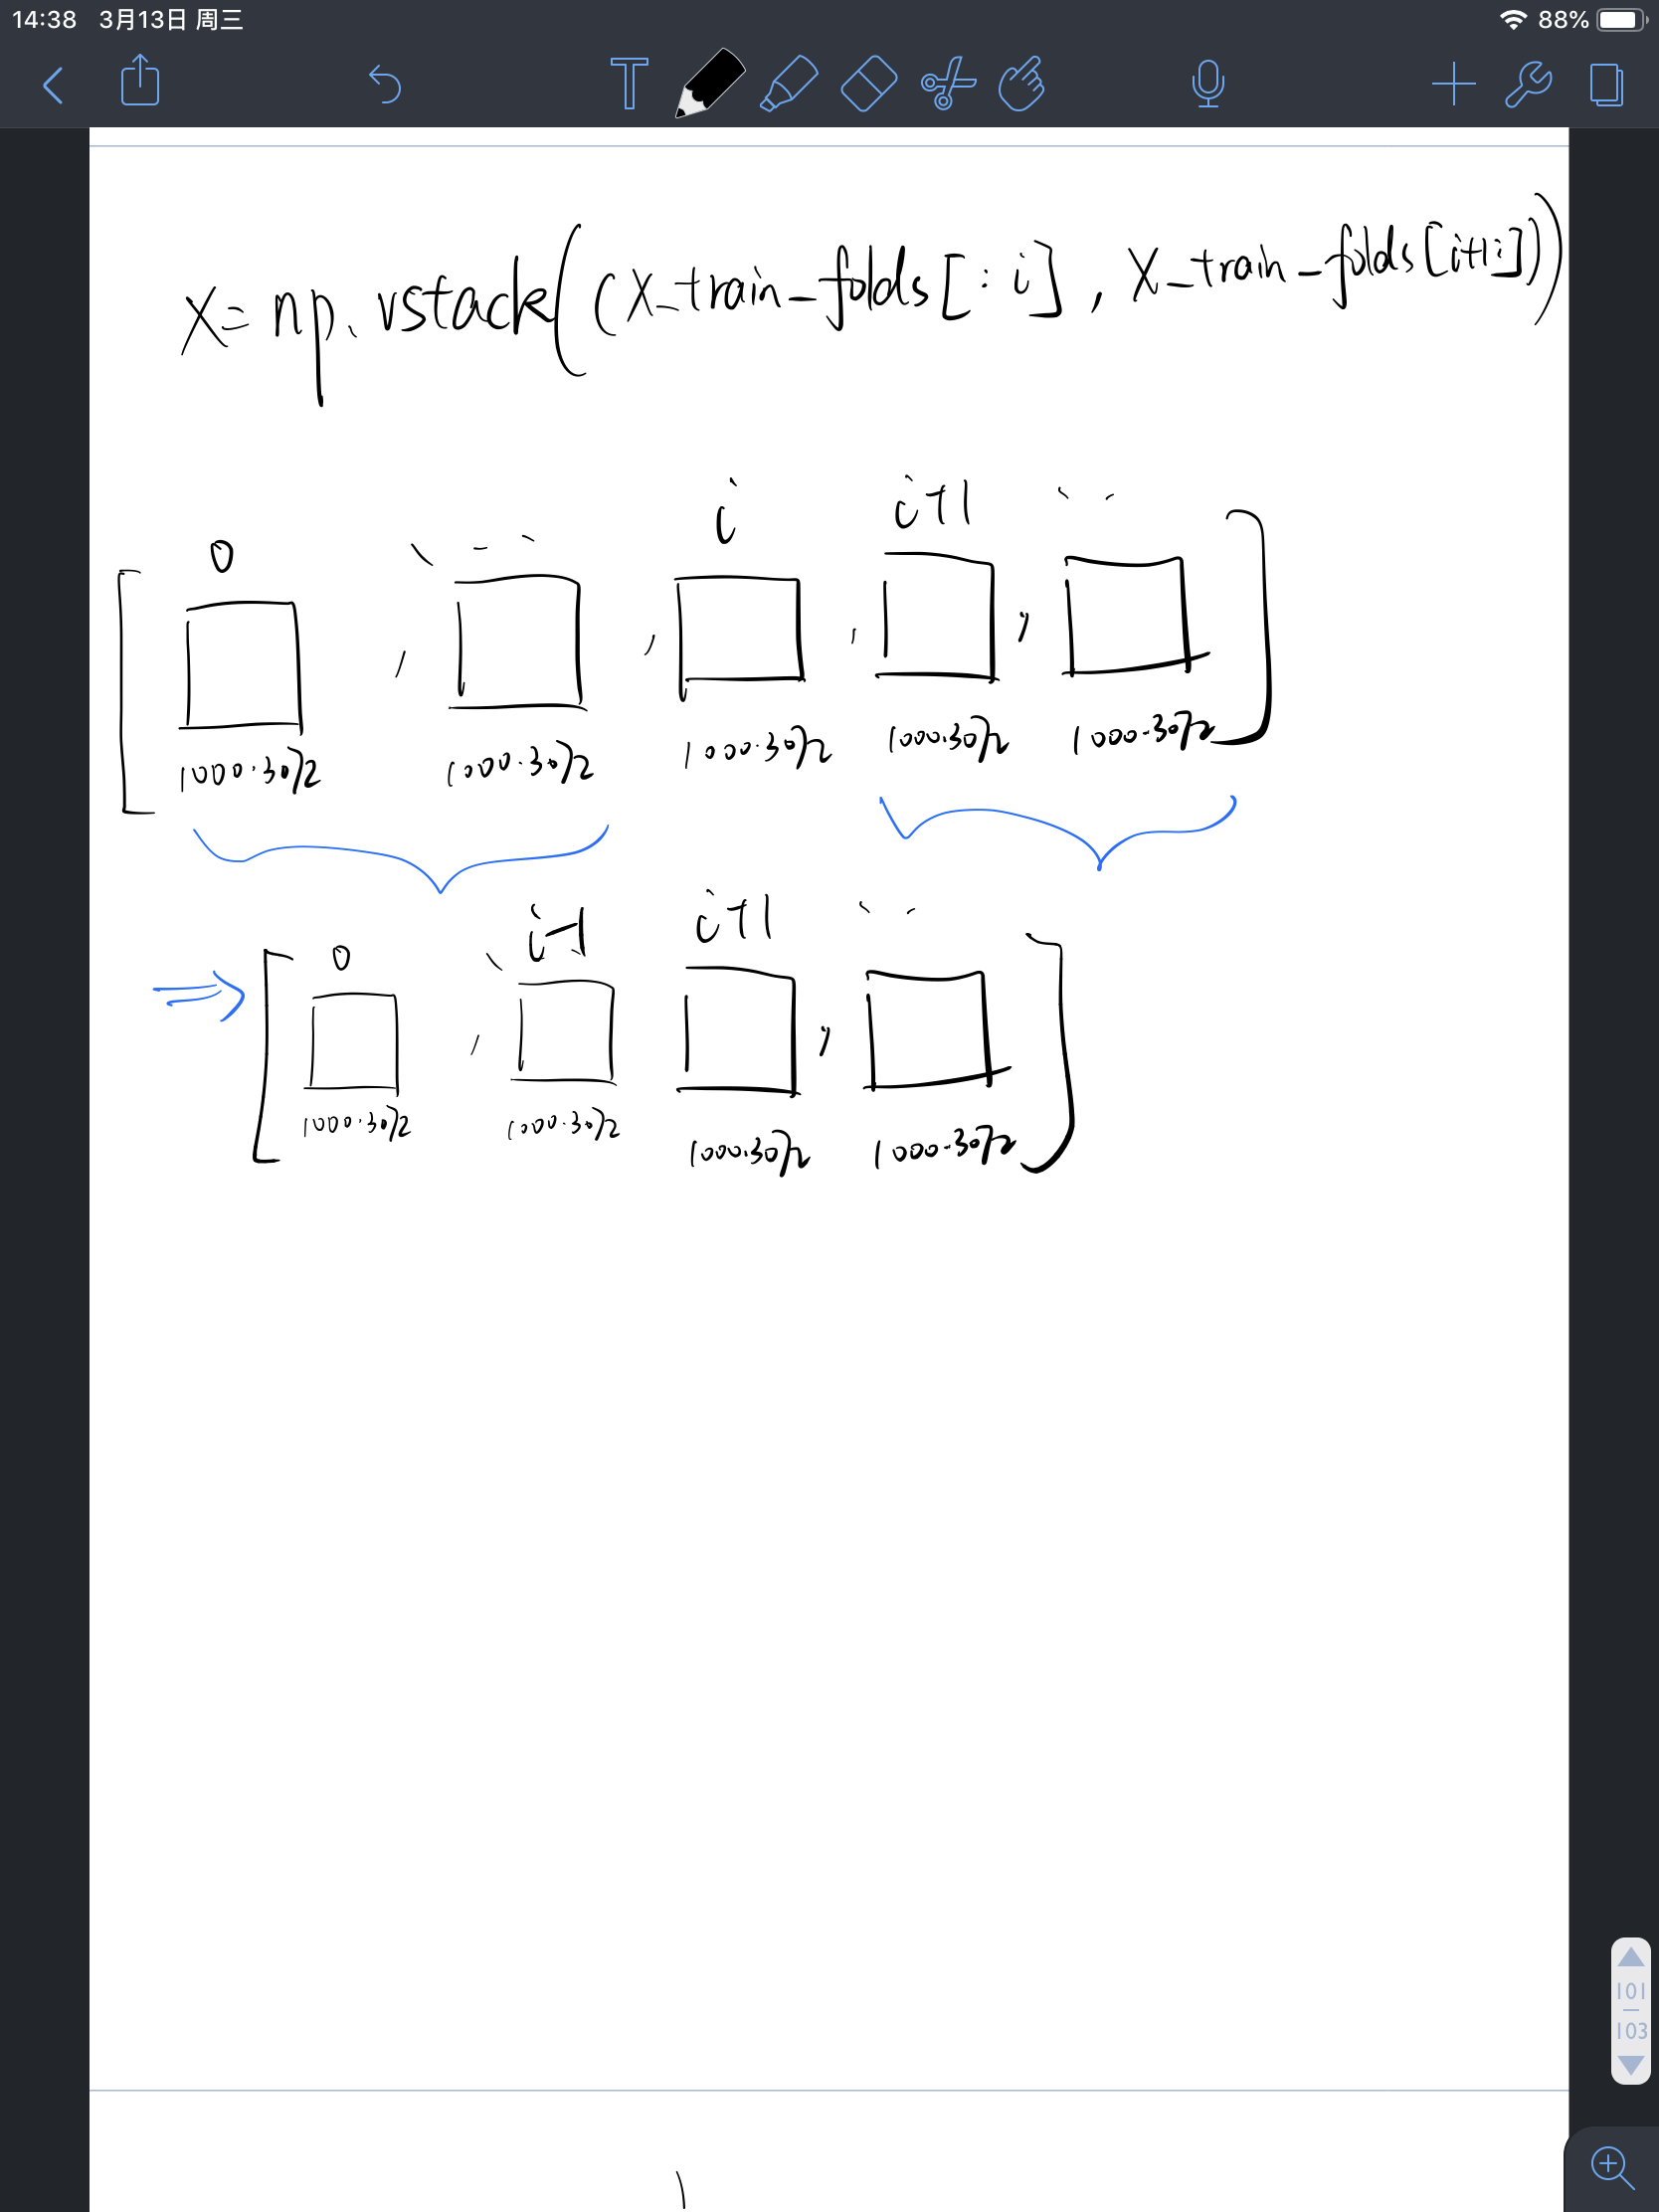 14:38 3月13日 周三 88%
T
X= np.vstack((X_train_folds[:i], X_train_folds[i+1:]))
0 i i+1
[ , , , , ]
1000·3072 1000·3072 1000·3072 1000·3072 1000·3072
0 i-1 i+1
⇒ [ , , ]
1000·3072 1000·3072 1000·3072 1000·3072
101
103